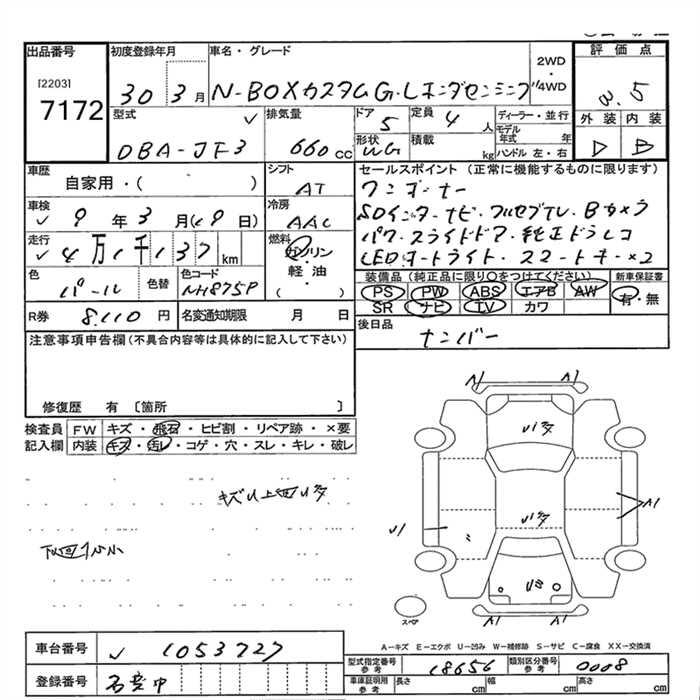 出品番号 初度登録年月 車名・グレード 2WD・4WD 評価点
[2203] 7172 30 3月 N-BOXカスタムG・Lホンダセンシング 3.5
型式 排気量 ドア 定員 ディーラー・並行 外装 内装
DBA-JF3 660cc 5 4人 モデル年式 年 D B
形状 WG 積載 kg ハンドル 左・右
車歴 シフト セールスポイント (正常に機能するものに限ります)
自家用・( ) AT ワンオーナー
車検 9年3月(19日) 冷房 AAC SDインターナビ・フルセグTV・Bカメラ
走行 4万1千137km 燃料 ガソリン・軽油 ( ) パワースライドドア・純正ドラレコ
LEDオートライト・スマートキー×2
色 パール 色替 色コード NH875P
装備品 (純正品に限り○をつけてください) 新車保証書
PS PW ABS エアB AW 有・無
SR ナビ TV カワ
R券 8.110円 名変通知期限 月 日 後日品 ナンバー
注意事項申告欄(不具合内容等は具体的に記入して下さい)
修復歴 有 〔箇所 〕
検査員 FW キズ・飛石・ヒビ割・リペア跡・×要
記入欄 内装 キズ・汚レ・コゲ・穴・スレ・キレ・破レ
A1 A1
A1
スペア
A1 A1
A-キズ E-エクボ U-凹み W-補修跡 S-サビ C-腐食 XX-交換済
車台番号 1053727
型式指定番号 参考 18656 類別区分番号 参考 0008
登録番号 名変中 車庫証明用 参考 長さ cm 幅 cm 高さ cm